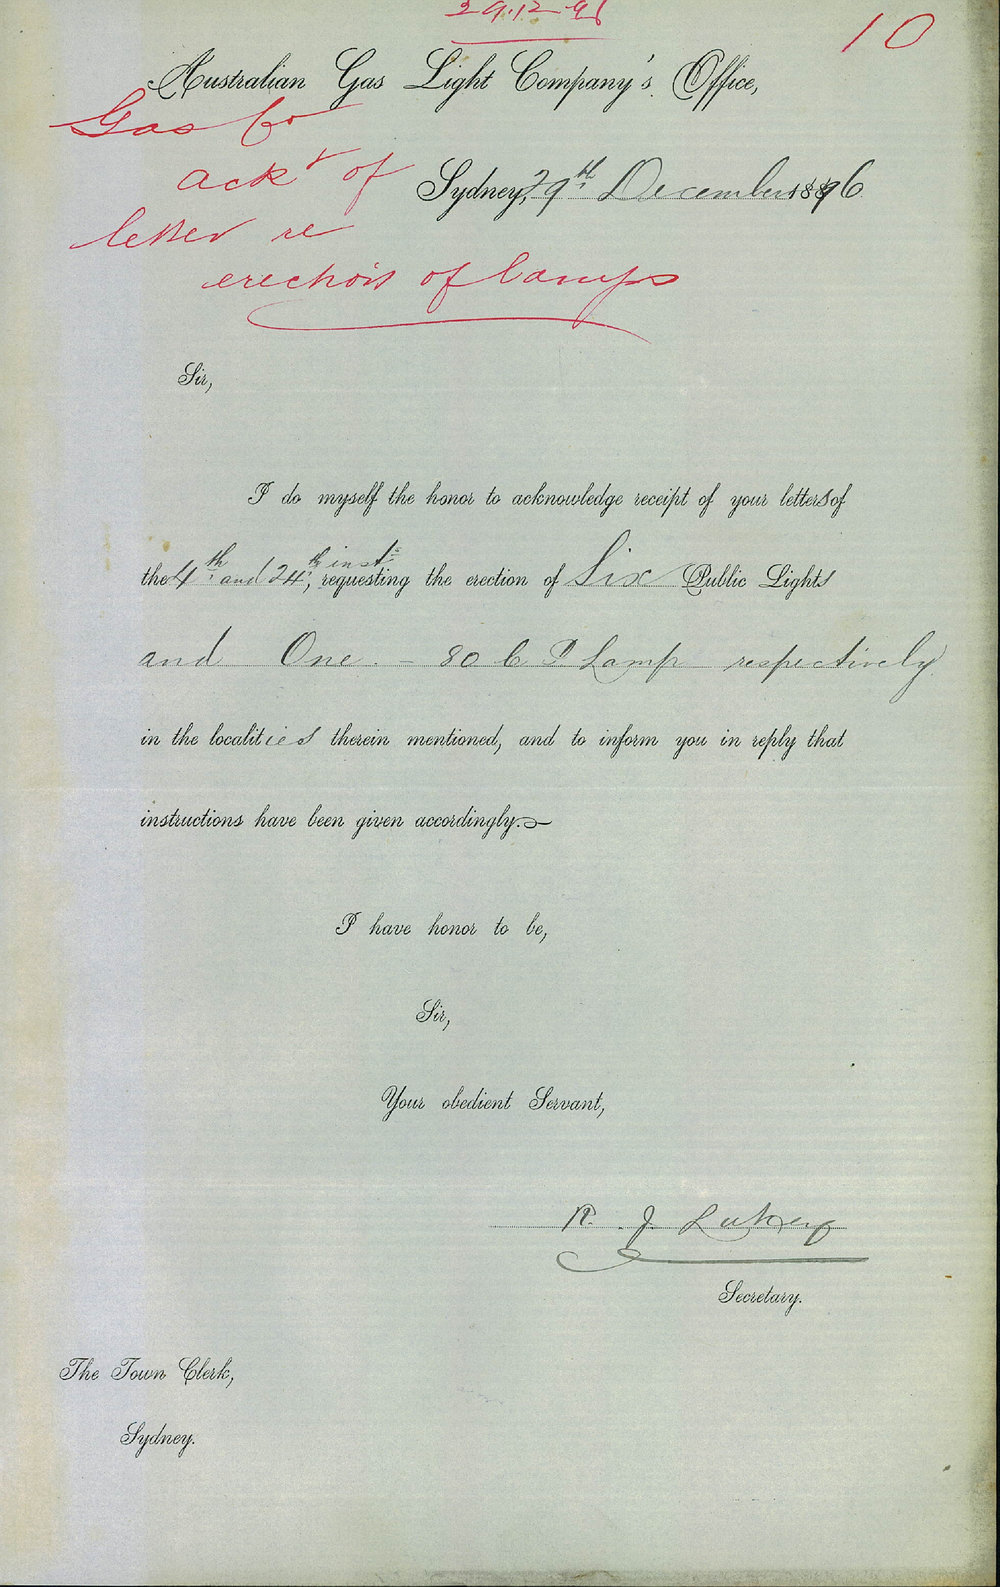 29.12.96
10
Australian Gas Light Company's Office,
Gas Co
ackt of
Sydney, 29th December 1896
letter re
erection of lamps
Sir,
I do myself the honor to acknowledge receipt of your letters of
the 4th and 24th inst, requesting the erection of Six Public Lights
and One - 80 C P Lamp respectively
in the localities therein mentioned, and to inform you in reply that
instructions have been given accordingly.
I have honor to be,
Sir,
Your obedient Servant,
R. J. Lukey
Secretary.
The Town Clerk,
Sydney.